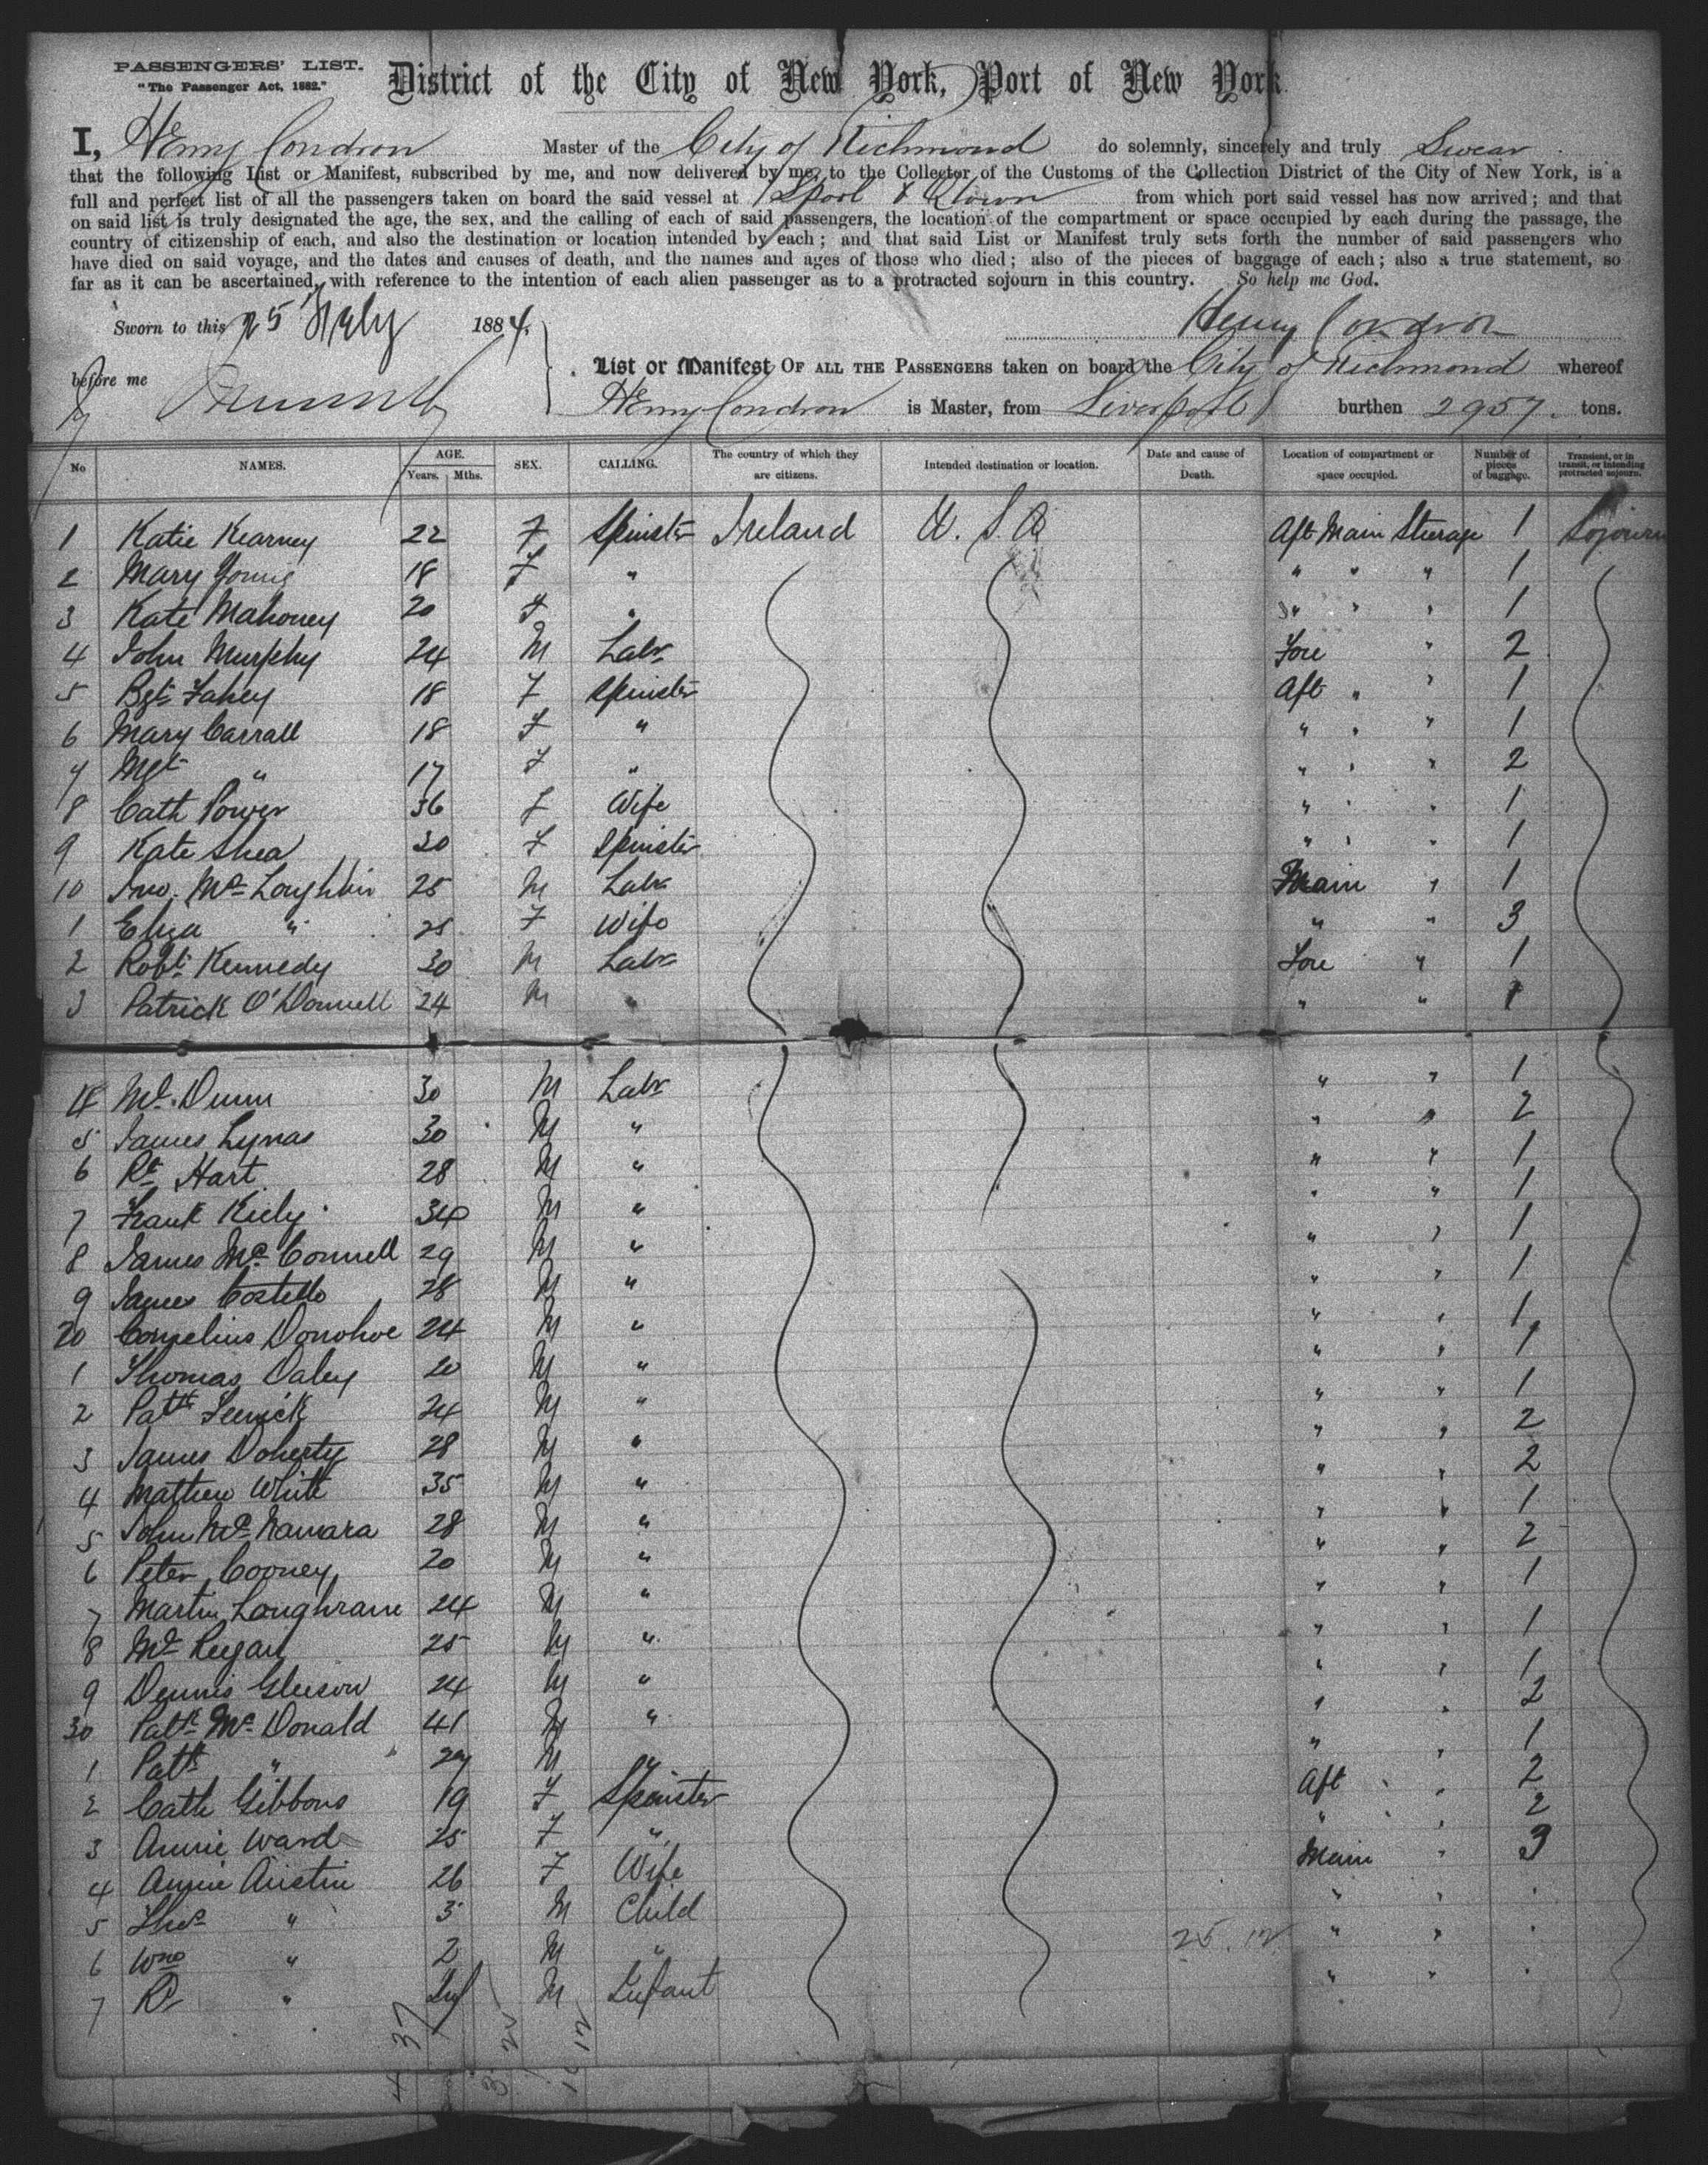 PASSENGERS' LIST.
"The Passenger Act, 1882."
District of the City of New York, Port of New York.
I, Henry Condron Master of the City of Richmond do solemnly, sincerely and truly Swear
that the following List or Manifest, subscribed by me, and now delivered by me, to the Collector of the Customs of the Collection District of the City of New York, is a
full and perfect list of all the passengers taken on board the said vessel at L'pool & Qtown from which port said vessel has now arrived; and that
on said list is truly designated the age, the sex, and the calling of each of said passengers, the location of the compartment or space occupied by each during the passage, the
country of citizenship of each, and also the destination or location intended by each; and that said List or Manifest truly sets forth the number of said passengers who
have died on said voyage, and the dates and causes of death, and the names and ages of those who died; also of the pieces of baggage of each; also a true statement, so
far as it can be ascertained, with reference to the intention of each alien passenger as to a protracted sojourn in this country. So help me God.
Sworn to this 25 1884. Henry Condron
before me
List or Manifest OF ALL THE PASSENGERS taken on board the City of Richmond whereof
Henry Condron is Master, from Liverpool burthen 2957. tons.
No NAMES. AGE. Years. Mths. SEX. CALLING. The country of which they are citizens. Intended destination or location. Date and cause of Death. Location of compartment or space occupied. Number of pieces of baggage. Transient, or in transit, or intending protracted sojourn.
1 Katie Kearney 22 F Spinster Ireland U.S.A Aft Main Sterage 1 Sojourn
2 Mary Young 18 F " " " " 1
3 Kate Mahoney 20 F " " " " 1
4 John Murphy 24 M Labr Fore " 2
5 Bgt Fahey 18 F Spinster Aft " " 1
6 Mary Carrall 18 F " " " " 1
7 Mgt " 17 F " " " " 2
8 Cath Power 36 F Wife " " " 1
9 Kate Shea 30 F Spinster " " " 1
10 Jno. Mc Loughlin 25 M Labr Main " 1
1 Eliza " 25 F Wife " " 3
2 Robt Kennedy 30 M Labr Fore " 1
3 Patrick O'Donnell 24 M " " " 1
4 Ml. Dunn 30 M Labr " " 1
5 James Lynas 30 M " " " 2
6 Rd Hart 28 M " " " 1
7 Frank Kiely 34 M " " " 1
8 James Mc Connell 29 M " " " 1
9 James Costello 28 M " " " 1
20 Cornelius Donohoe 24 M " " " 1
1 Thomas Daley 20 M " " " 1
2 Patk 24 M " " " 1
3 James Doherty 28 M " " " 2
4 Mathew White 35 M " " " 2
5 John Mc Namara 28 M " " " 1
6 Peter Cooney 20 M " " " 2
7 Martin Loughrane 24 M " " " 1
8 Ml Regan 25 M " " " 1
9 Dennis Gleeson 24 M " " " 1
30 Patk Mc Donald 41 M " " " 2
1 Patk " 27 M " " " 1
2 Cath Gibbons 19 F Spinster Aft " " 2
3 Annie Ward 25 F " " " " 2
4 Annie Austin 26 F Wife Main " 3
5 Thos " 3 M Child " "
6 Wm " 2 M " 25.12 " "
7 Rd " Inf M Infant " "
37
12